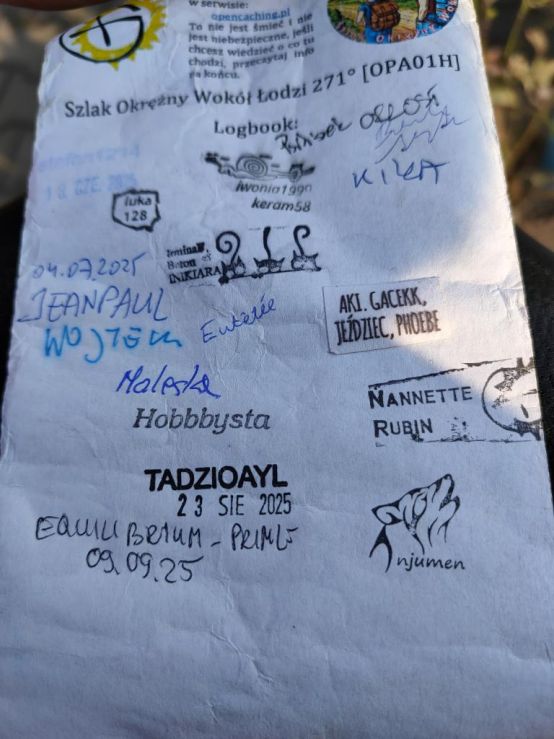 w serwisie:
opencaching.pl
To nie jest śmieć i nie
jest niebezpieczne, jeśli
chcesz wiedzieć o co tu
chodzi, przeczytaj info
na końcu.
Szlak Okrężny Wokół Łodzi 271° [OPA01H]
Logbook:
stefan1214
18 CZE. 2025
KIKA
iwonia1990
keram58
luka
128
INIKIARA
04.07.2025
JEANPAUL
WOJTEK
AKI. GACEKK,
JEŹDZIEC, PHOEBE
Maleska
Hobbbysta
NANNETTE
RUBIN
TADZIOAYL
23 SIE 2025
EQUILIBRIUM - PRIME
09.09.25
njumen